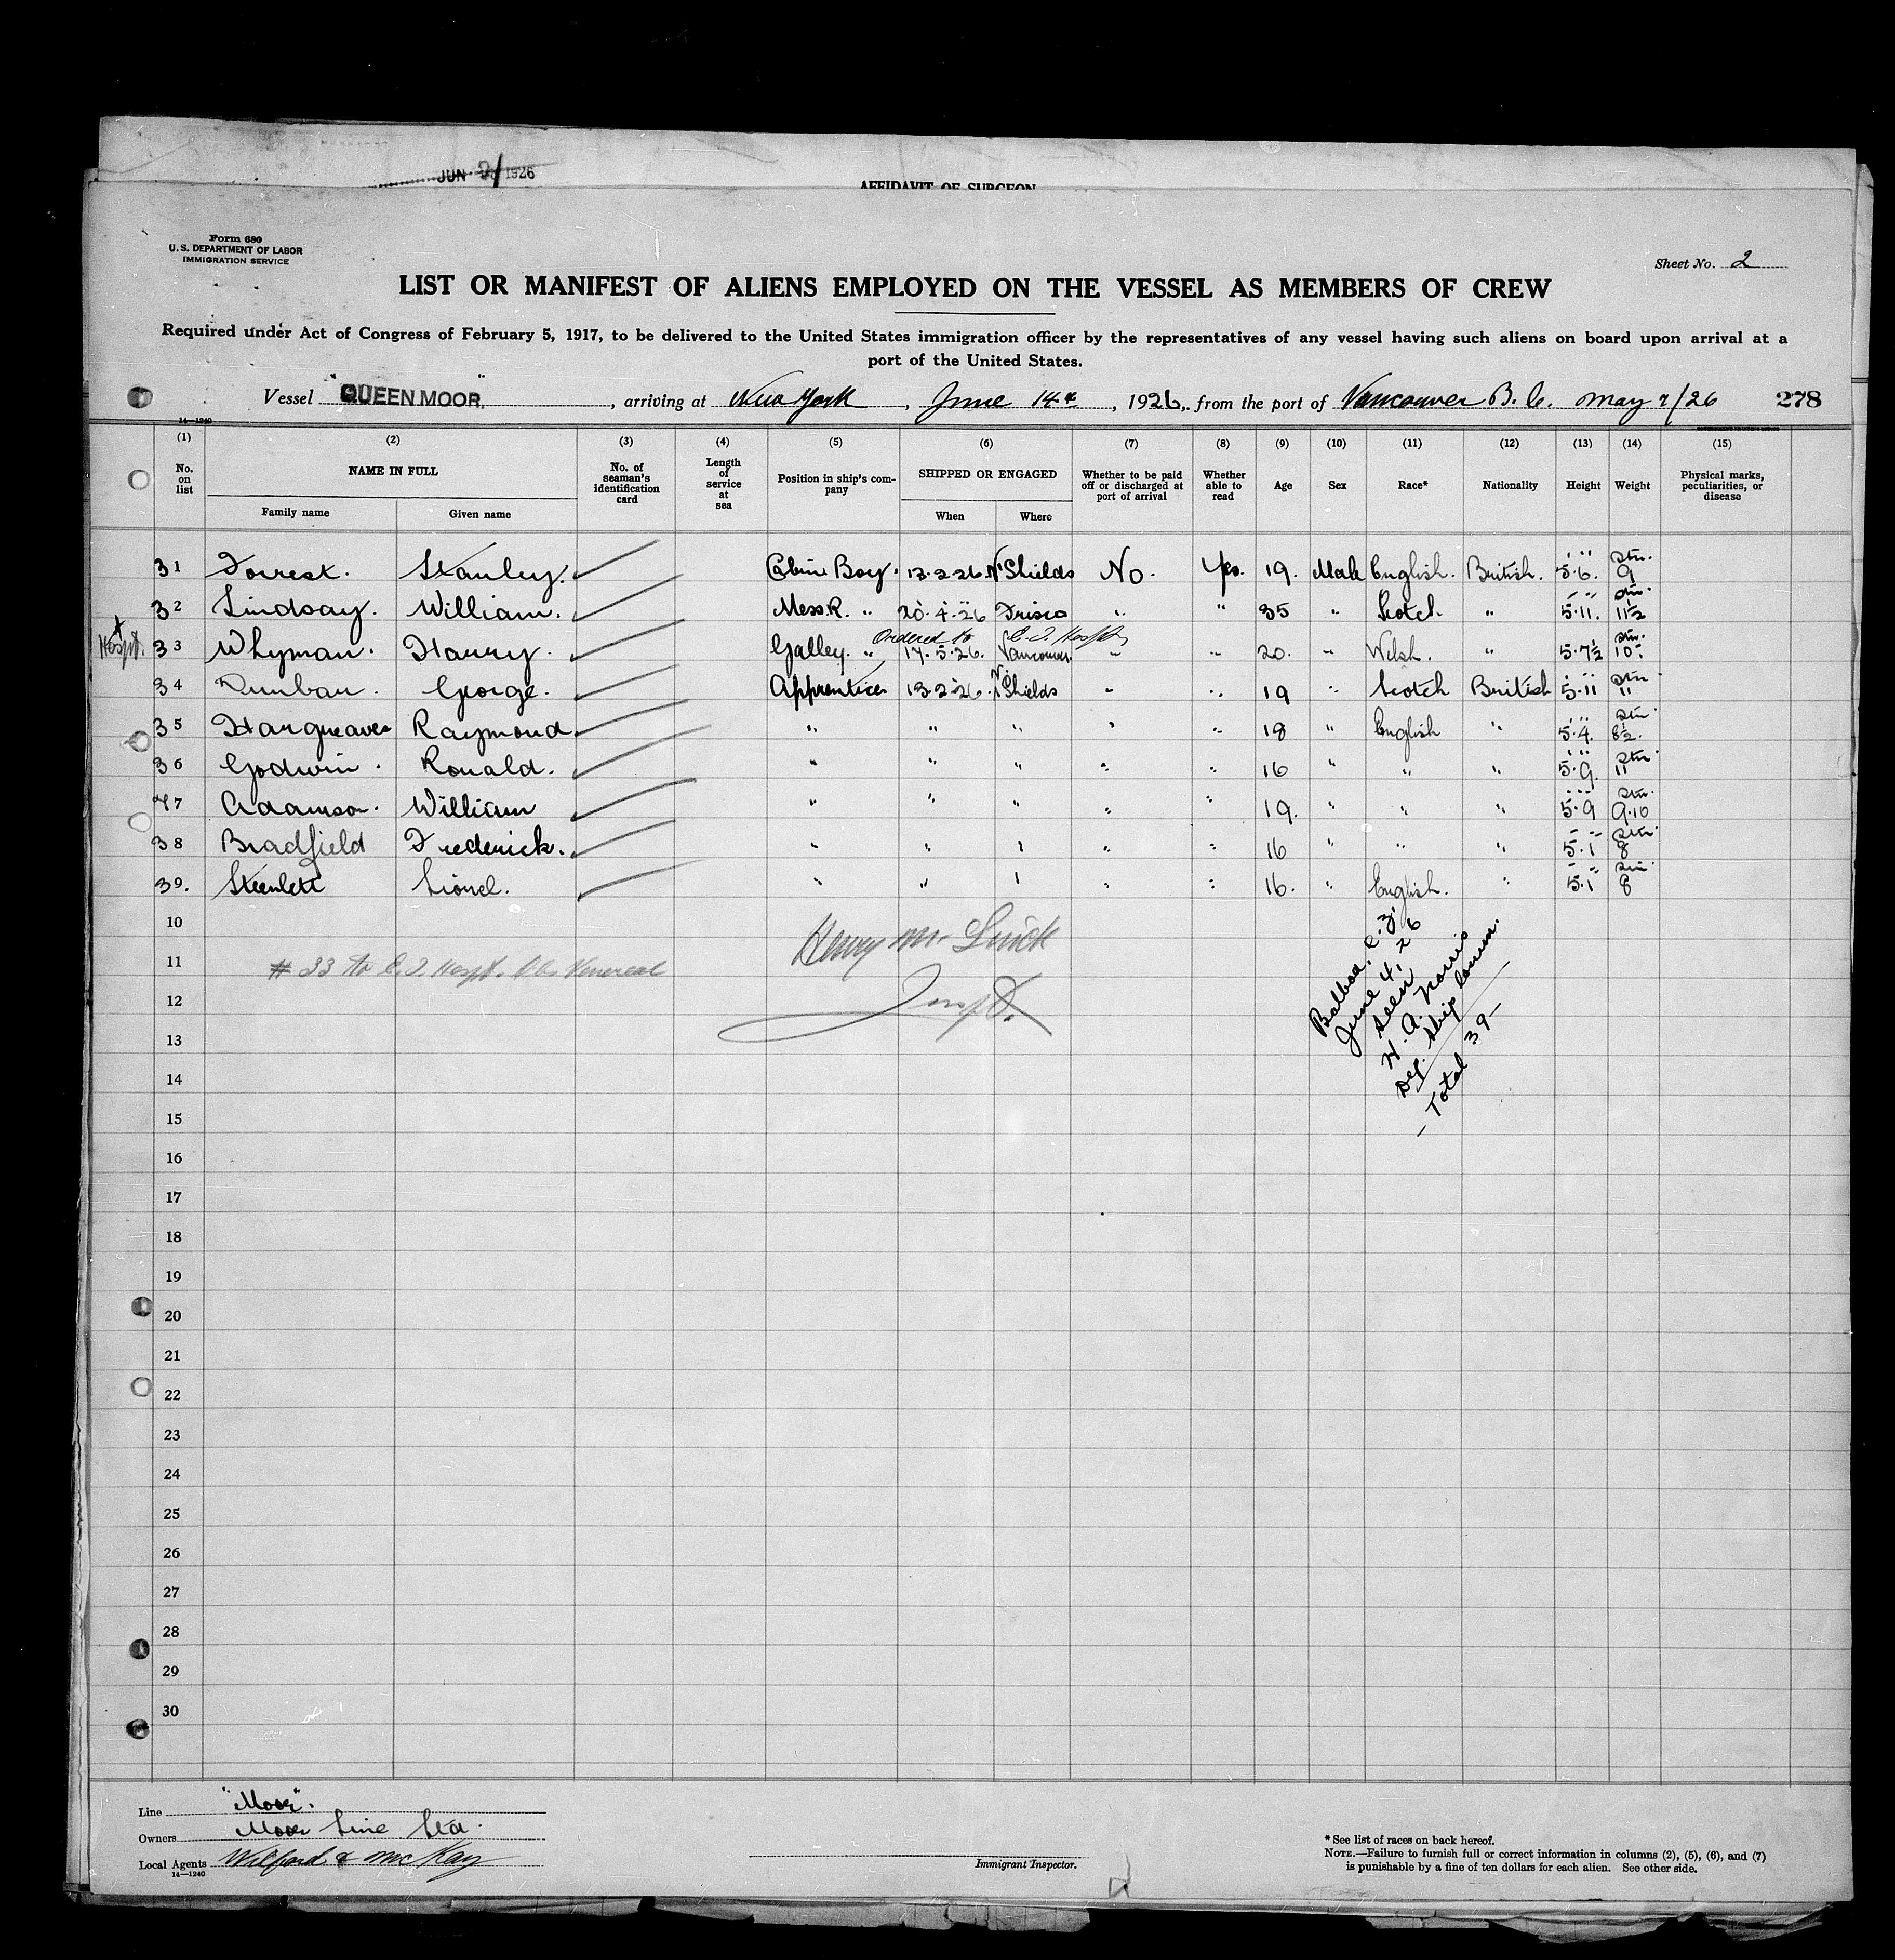 JUN 1926
AFFIDAVIT OF SURGEON
Form 680
U. S. DEPARTMENT OF LABOR
IMMIGRATION SERVICE
Sheet No. 2
LIST OR MANIFEST OF ALIENS EMPLOYED ON THE VESSEL AS MEMBERS OF CREW
Required under Act of Congress of February 5, 1917, to be delivered to the United States immigration officer by the representatives of any vessel having such aliens on board upon arrival at a
port of the United States.
Vessel "QUEEN MOOR", arriving at New York, June 14th, 1926, from the port of Vancouver B.C. May 7/26 278
14—1240
(1) (2) (3) (4) (5) (6) (7) (8) (9) (10) (11) (12) (13) (14) (15)
No. on list NAME IN FULL No. of seaman's identification card Length of service at sea Position in ship's company SHIPPED OR ENGAGED Whether to be paid off or discharged at port of arrival Whether able to read Age Sex Race* Nationality Height Weight Physical marks, peculiarities, or disease
Family name Given name When Where
31 Forrest. Stanley. Cabin Boy. 13.2.26 N Shields No. Yes. 19. Male English. British. 5.6. 9 stn.
32 Lindsay. William. Mess R. " 20.4.26 Frisco " " 35 " Scotch " 5.11. 11½ stn.
Ordered to E.I. Hospl
Hospt. 33 Whyman. Harry. Galley. " 17.5.26. Vancouver. " " 20. " Welsh. " 5.7½ 10 stn.
34 Dunbar. George. Apprentice 13.2.26. N. Shields " " 19 " Scotch British 5.11 11 stn.
35 Hargreaves Raymond " " " " " 18 " English " 5.4. 8½. stn.
36 Godwin. Ronald. " " " " " 16 " " " 5.9. 11 stn.
37 Adamson. William " " " " " 19. " " " 5.9 9.10 stn.
38 Bradfield Frederick. " " " " " 16 " " " 5.1 8 stn.
39. Lionel. " " " " " 16. " English. " 5.1 8 stn.
10
Henry M.
11
# 33 to E.I. Hospt. Venereal
12
Inspt.
13
Balboa. C.Z.
June 4, 26
Seen
H. A. Norris
Dep. Ship Comm.
— Total 39 —
14
15
16
17
18
19
20
21
22
23
24
25
26
27
28
29
30
Line "Moor".
Owners Moor Line Ltd.
Local Agents Wilford & McKay
14—1240
Immigrant Inspector.
* See list of races on back hereof.
NOTE.—Failure to furnish full or correct information in columns (2), (5), (6), and (7)
is punishable by a fine of ten dollars for each alien. See other side.